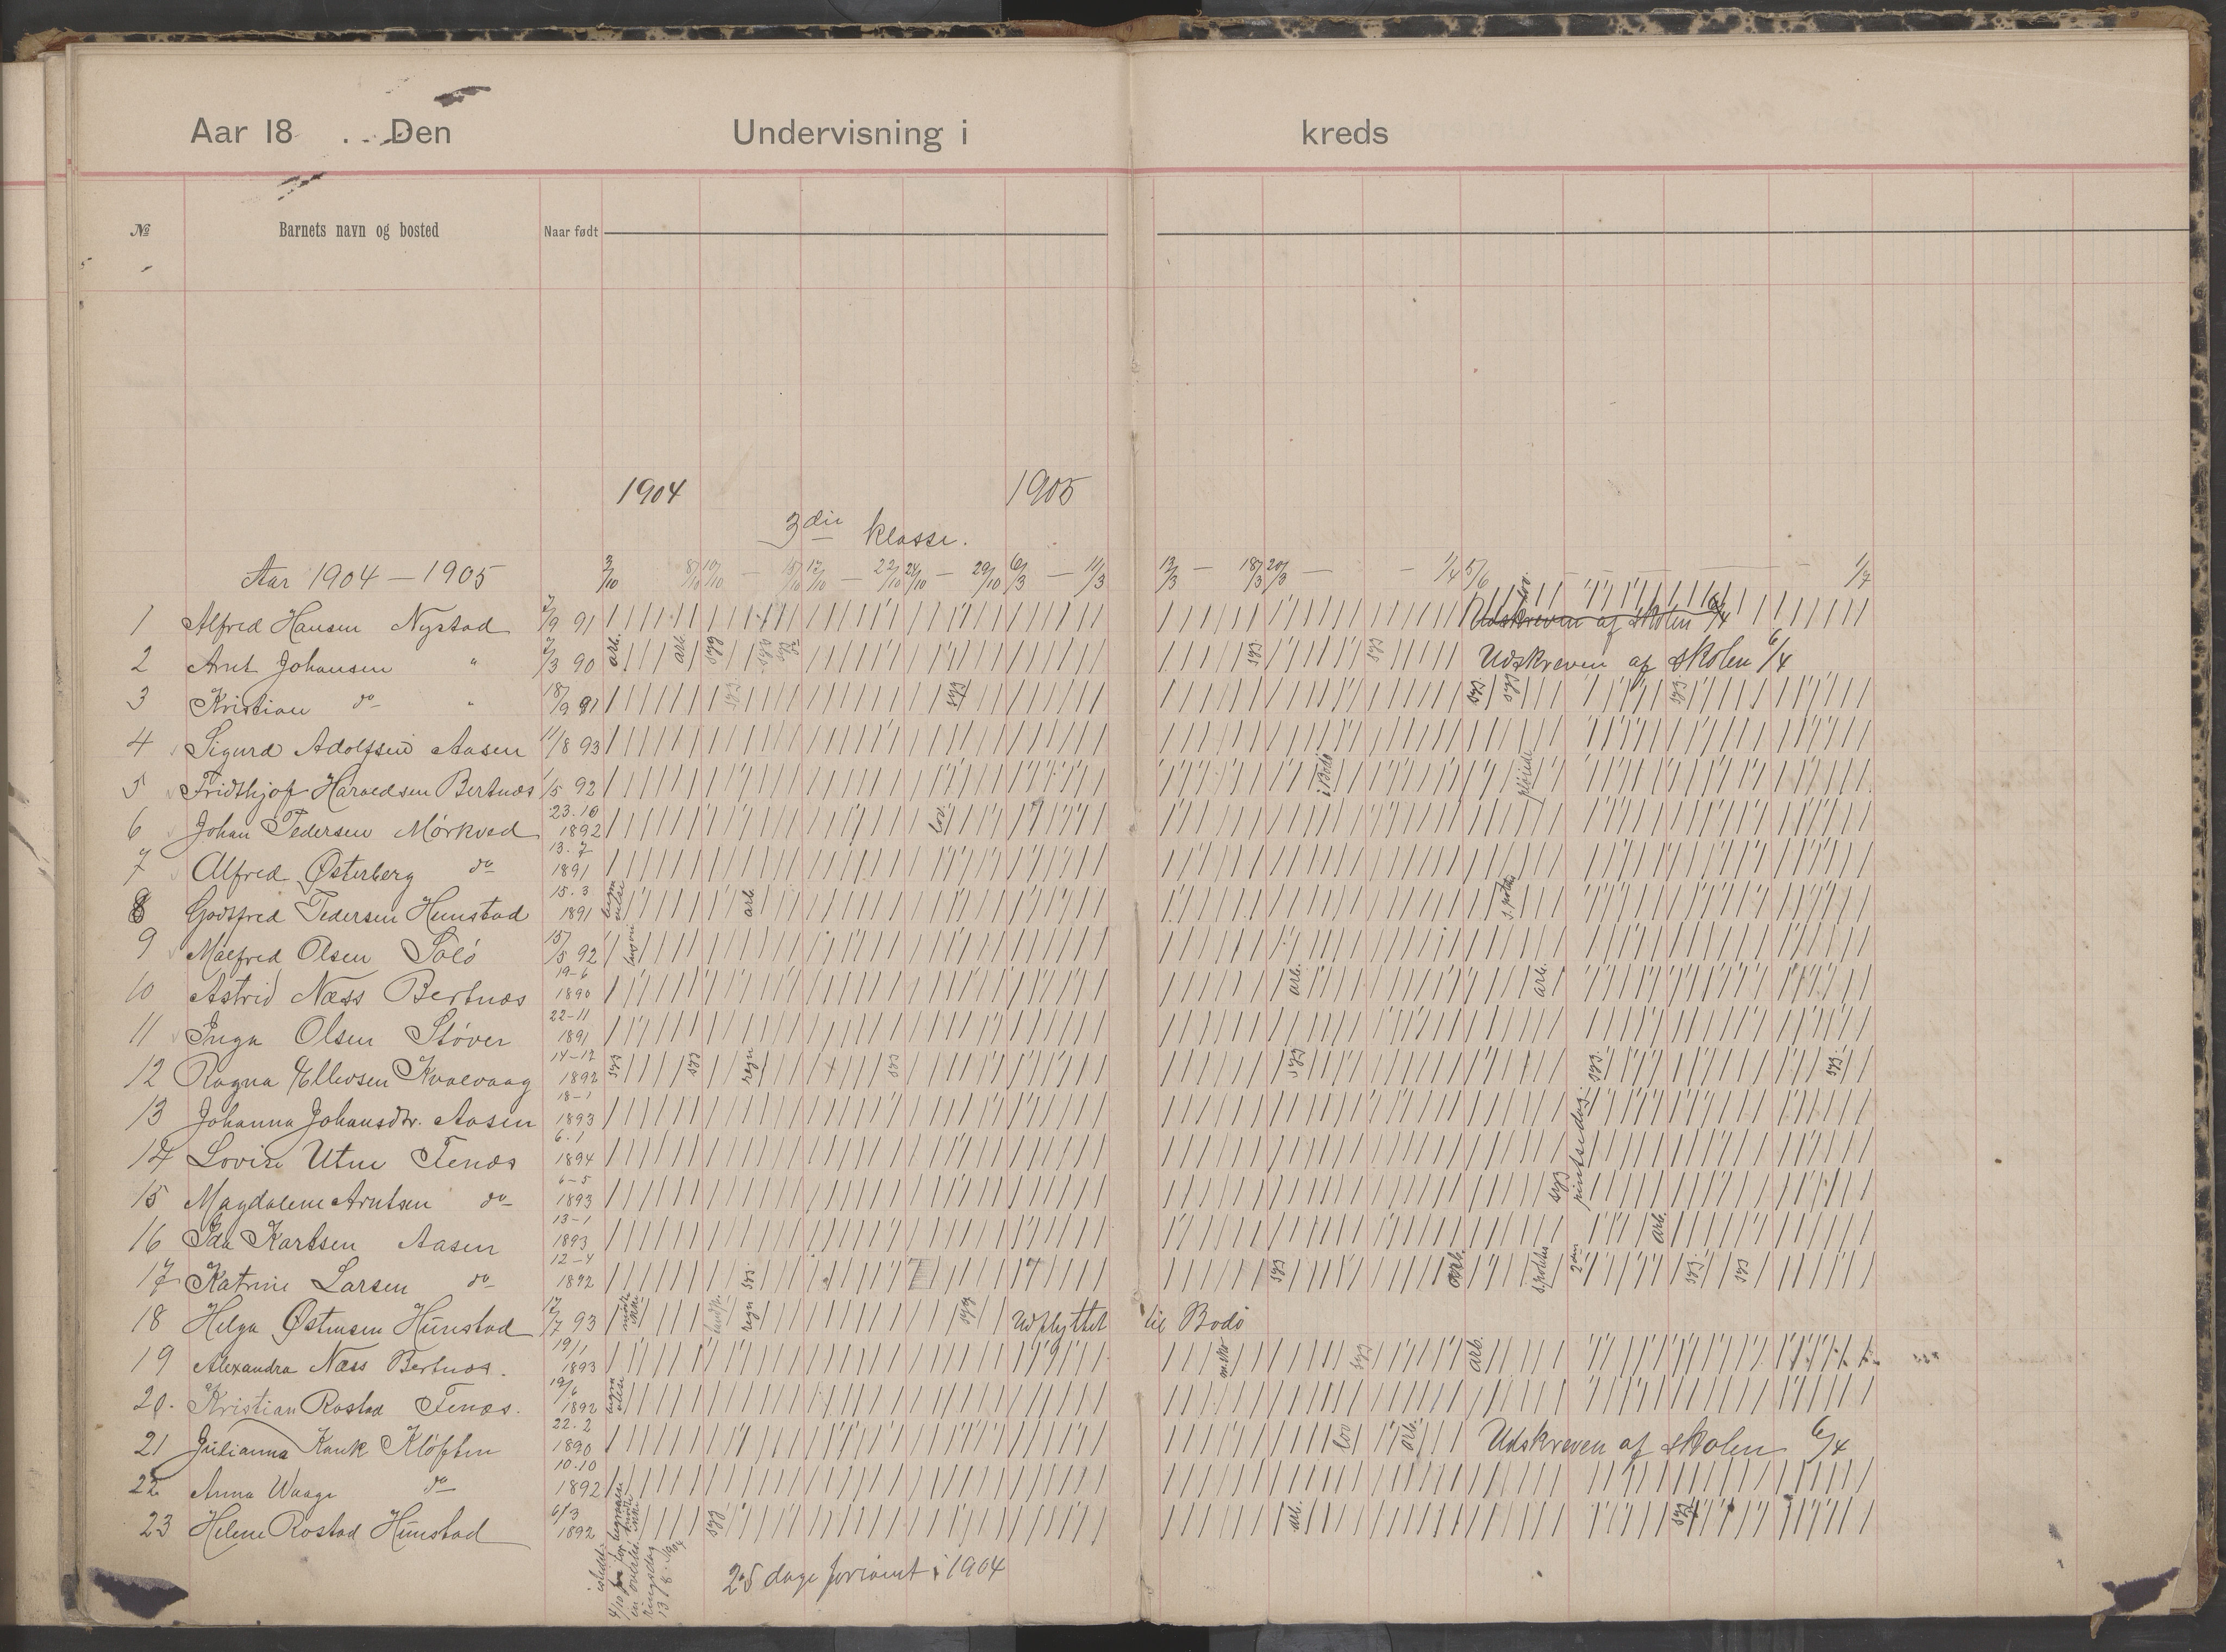 Aar 18 Den Undervisning i kreds
№ Barnets navn og bosted Naar født
1904 1905
3die klasse.
Aar 1904 — 1905 3/10 8/10 10/10 — 15/10 17/10 — 22/10 24/10 — 29/10 6/3 — 11/3 13/3 — 18/3 20/3 — 1/4 5/6 — 1/7
1 Alfred Hansen Nystad 2/9 91 lov. Udskreven af skolen 6/4
2 Arnt Johansen " 2/3 90 arb. arb. syg syg syg do syg syg Udskreven af skolen 6/4
3 Kristian do " 18/9 91 syg syg syg syg syg
4 Sigurd Adolfsen Aasen 11/8 93
5 Fridthjof Haraldsen Bertnæs 1/5 92 i Bodø
6 Johan Pedersen Mörkved 23.10 1892 lov
7 Alfred Østerberg do 13.7 1891
8 Godtfred Pedersen Hunstad 15.3 1891 arb.
9 Malfred Olsen Sölö 15/5 92
10 Astrid Næss Bertnæs 19-6 1890 arb. arb.
11 Inga Olsen Støver 22-11 1891
12 Ragna Ellevsen Kvalvaag 14-12 1892 syg syg regn syg syg syg. syg.
13 Johanna Johansdtr. Aasen 18-1 1893
14 Lovise Utne Fenæs 6.1 1894
15 Magdalene Arntsen do 6-5 1893 syg pintsedag.
16 Ida Karlsen Aasen 13-1 1893 arb.
17 Katrine Larsen do 12-4 1892 syg. syg arb. 2den syg. syg
18 Helga Østensen Hunstad 17/7 93 mødt ikke regn syg Udflyttet til Bodö
19 Alexandra Næss Bertnæs. 19/1 1893 syg arb.
20. Kristian Rostad Fenæs. 19/6 1892
21 Julianna Kunk Klöften 22.2 1890 lov arb. Udskreven af skolen 6/4
22 Anna Waage do 10.10 1892
23 Helene Rostad Hunstad 6/3 1892 syg arb. syg
25 dage forsömt i 1904